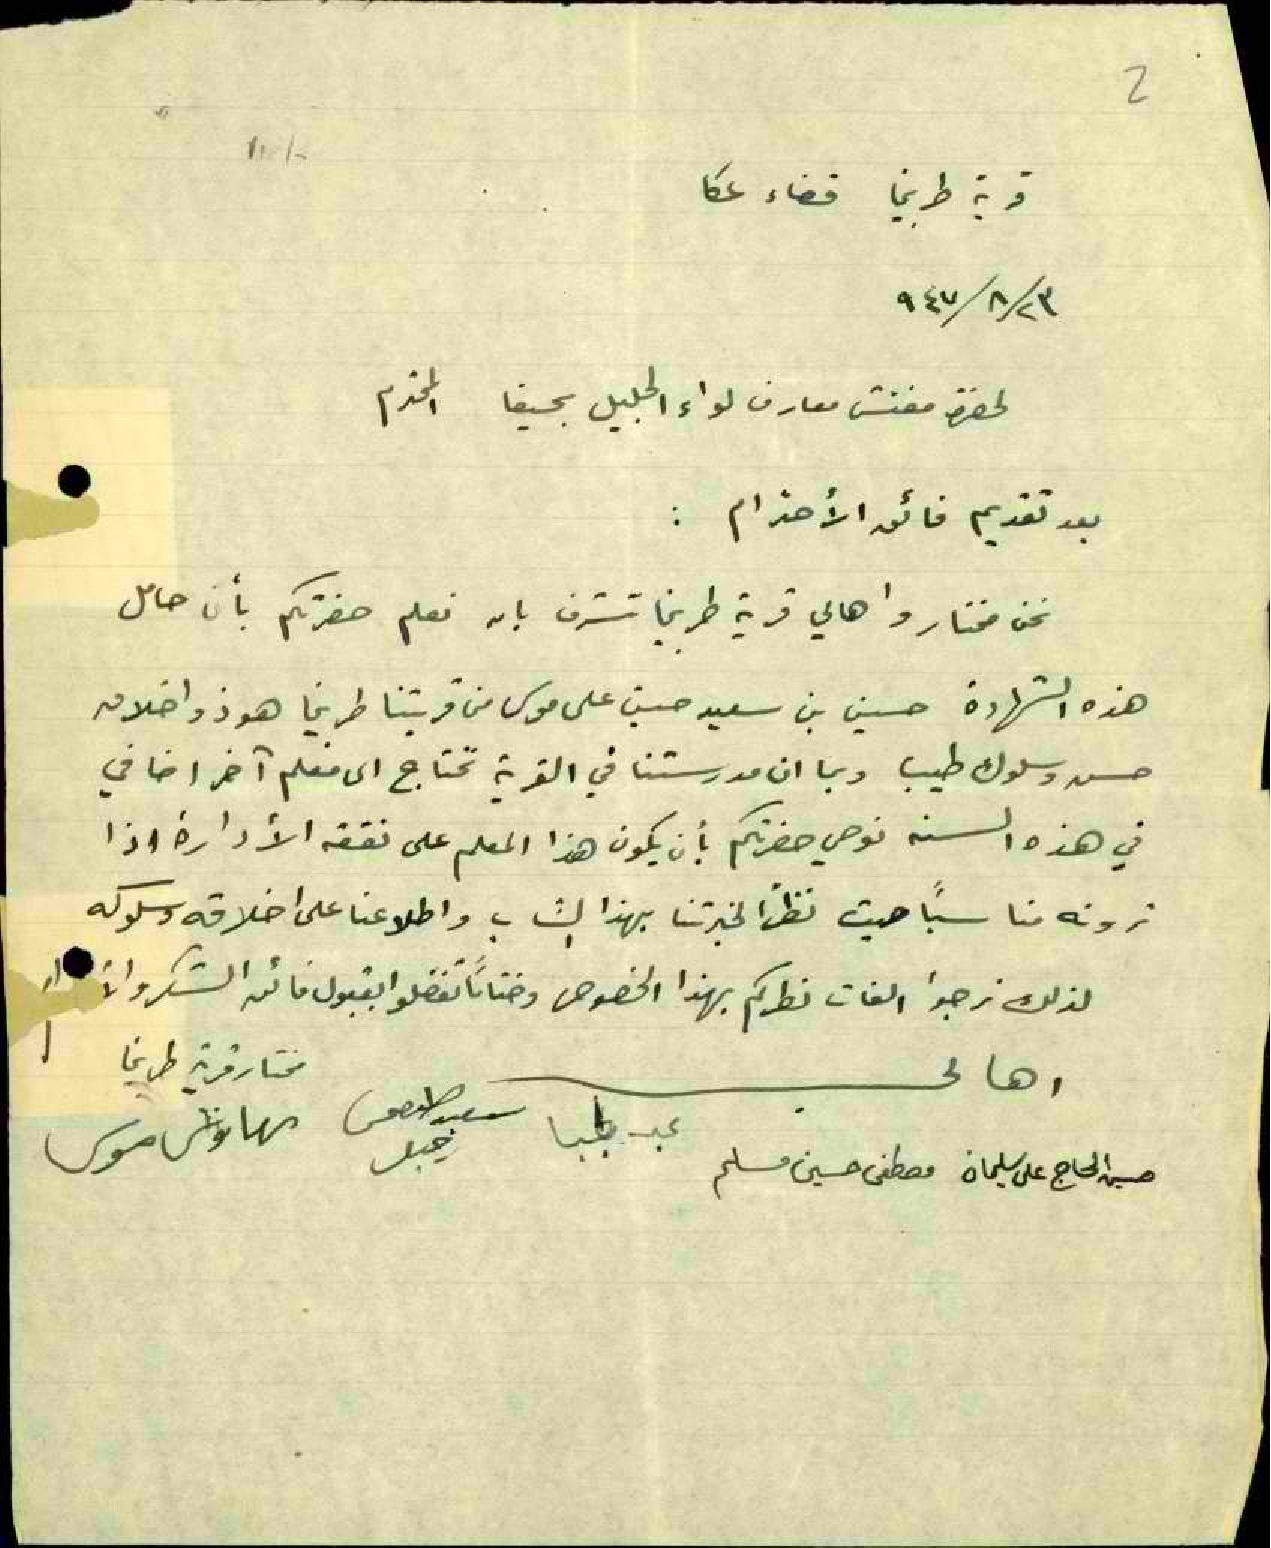 2
قرية طربيخا قضاء عكا
٢٣/٨/٩٤٧
لحضرة مفتش معارف لواء الجليل بحيفا المحترم
بعد تقديم فائق الأحترام :
نحن مختار واهالي قرية طربيخا نتشرف بان نعلم حضرتكم بأن حامل
هذه الشهادة حسين بن سعيد حسين علي موسى من قريتنا طربيخا هو ذو اخلاق
حسن وسلوك طيب وبما ان مدرستنا في القرية تحتاج الى معلم آخر اضافي
في هذه السنه نوصي حضرتكم بأن يكون هذا المعلم على نفقة الأدارة اذا
ترونه مناسبًا حيث نظرًا لخبرتنا بهذا الشاب واطلاعنا على اخلاقه وسلوكه
لذلك نرجوا الفات نظركم بهذا الخصوص وختامًا تفضلوا بقبول فائق الشكر
اهالي
مختار قرية طربيخا
حسين الحاج علي سليمان مصطفى حسين مسلم
سعيد
موسى